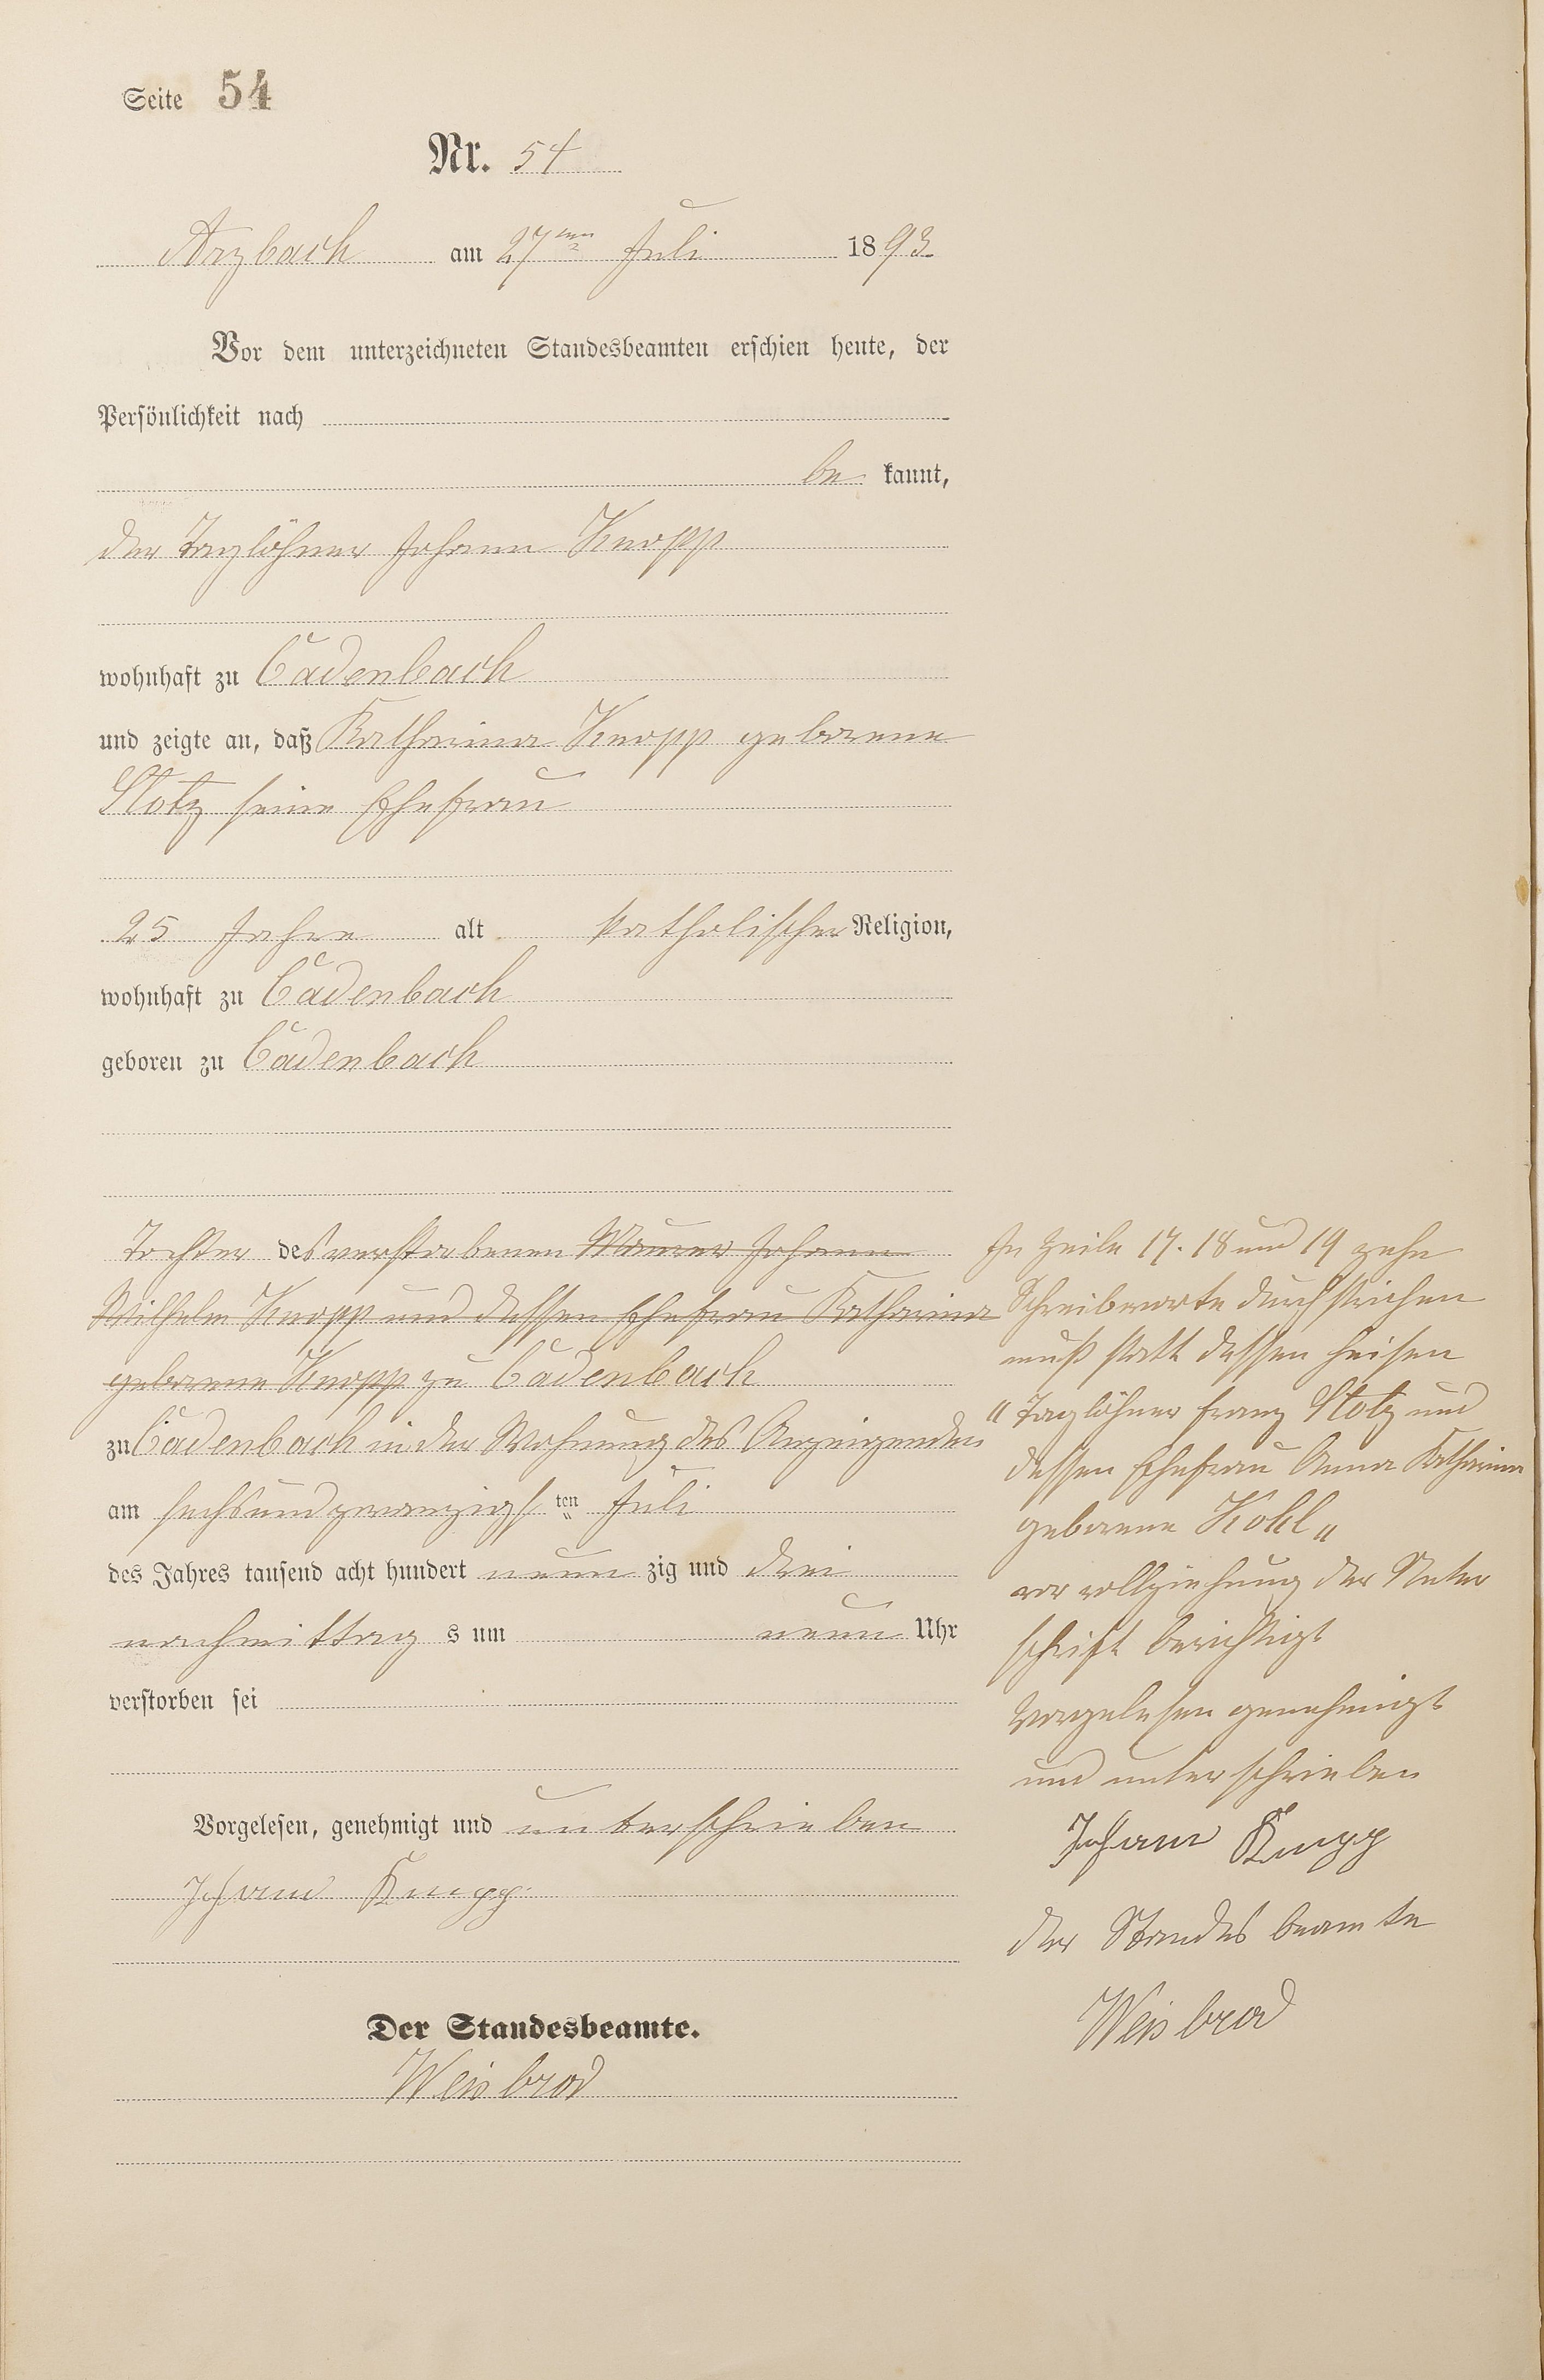 Seite 54
Nr. 54
Arzbach am 27ten Juli 1893
Vor dem unterzeichneten Standesbeamten erschien heute, der
Persönlichkeit nach
be kannt,
der Taglöhner Johann Knopp
wohnhaft zu Cadenbach
und zeigte an, daß Katharina Knopp geborene
Stotz seine Ehefrau
25 Jahre alt katholischer Religion,
wohnhaft zu Cadenbach
geboren zu Cadenbach
Tochter des verstorbenen Maurer Johann
Wilhelm Knopp und dessen Ehefrau Katharina
geborene Knopp zu Cadenbach
zu Cadenbach in der Wohnung des Anzeigenden
am sechsundzwanzigsten Juli
des Jahres tausend acht hundert neun zig und drei
nachmittag s um neun Uhr
verstorben sei
Vorgelesen, genehmigt und unterschrieben
Johann Knopp
Der Standesbeamte.
Weisbrod
In Zeile 17. 18 und 19 zehn
Schreibworte durchstrichen
muß statt dessen heisen
" Taglöhner Franz Stotz und
dessen Ehefrau Anna Katharina
geborene Kohl "
vor vollziehung der Unter
schrift berichtigt
Vorgelesen genehmigt
und unterschrieben
Johann Knopp
der Standesbeamte
Weisbrod